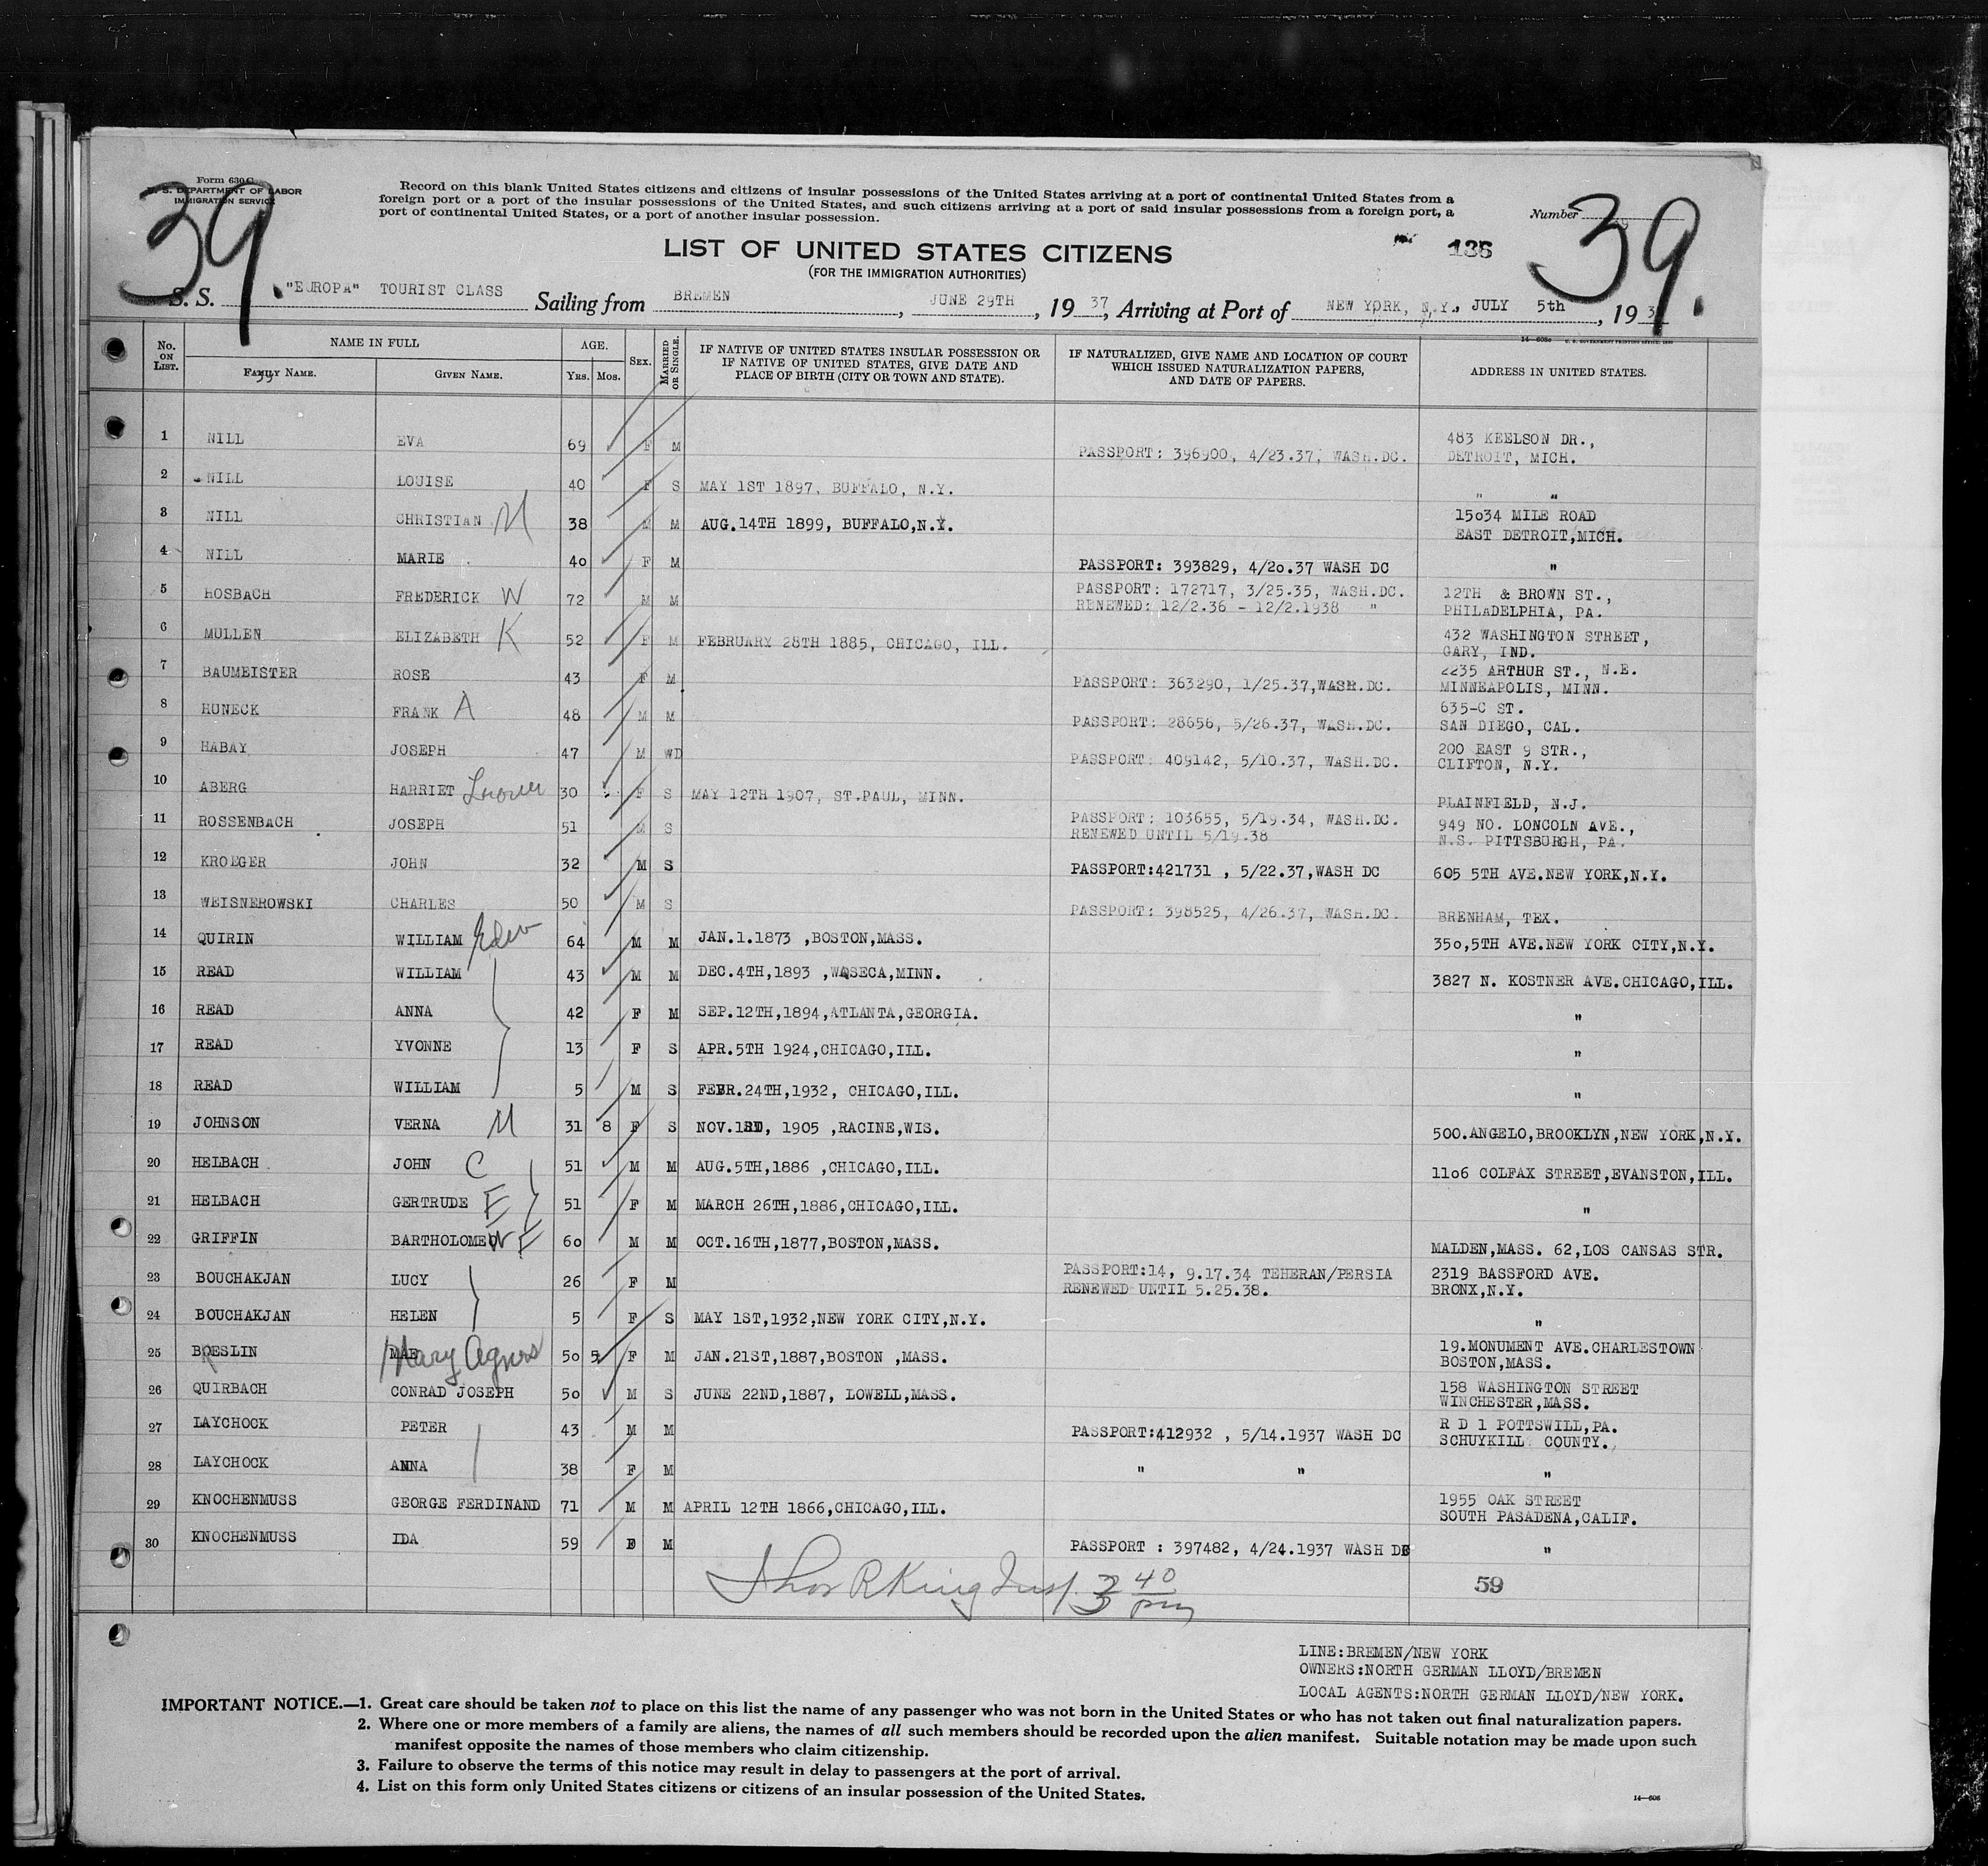 Form 630 C
U. S. DEPARTMENT OF LABOR
IMMIGRATION SERVICE
39.
Record on this blank United States citizens and citizens of insular possessions of the United States arriving at a port of continental United States from a
foreign port or a port of the insular possessions of the United States, and such citizens arriving at a port of said insular possessions from a foreign port, a
port of continental United States, or a port of another insular possession.
Number
39.
LIST OF UNITED STATES CITIZENS
136
(FOR THE IMMIGRATION AUTHORITIES)
S. S. "EUROPA" TOURIST CLASS Sailing from BREMEN, JUNE 29TH, 19 37, Arriving at Port of NEW YORK, N.Y., JULY 5th, 19 3
14—608c U. S. GOVERNMENT PRINTING OFFICE
No. ON LIST. NAME IN FULL FAMILY NAME. GIVEN NAME. AGE. YRS. MOS. SEX. MARRIED OR SINGLE. IF NATIVE OF UNITED STATES INSULAR POSSESSION OR IF NATIVE OF UNITED STATES, GIVE DATE AND PLACE OF BIRTH (CITY OR TOWN AND STATE). IF NATURALIZED, GIVE NAME AND LOCATION OF COURT WHICH ISSUED NATURALIZATION PAPERS, AND DATE OF PAPERS. ADDRESS IN UNITED STATES.
1 NILL EVA 69 F M PASSPORT: 396900, 4/23.37, WASH.DC. 483 KEELSON DR.,
DETROIT, MICH.
2 NILL LOUISE 40 F S MAY 1ST 1897, BUFFALO, N.Y. " "
3 NILL CHRISTIAN M 38 M M AUG.14TH 1899, BUFFALO,N.Y. 15o34 MILE ROAD
EAST DETROIT,MICH.
4 NILL MARIE 4o F M PASSPORT: 393829, 4/2o.37 WASH DC "
5 HOSBACH FREDERICK W 72 M M PASSPORT: 172717, 3/25.35, WASH.DC. 12TH & BROWN ST.,
RENEWED: 12/2.36 - 12/2.1938 " PHILADELPHIA, PA.
6 MULLEN ELIZABETH K 52 F M FEBRUARY 28TH 1885, CHICAGO, ILL. 432 WASHINGTON STREET,
GARY, IND.
7 BAUMEISTER ROSE 43 F M PASSPORT: 363290, 1/25.37,WASH.DC. 2235 ARTHUR ST., N.E.
MINNEAPOLIS, MINN.
8 HUNECK FRANK A 48 M M PASSPORT: 28656, 5/26.37, WASH.DC. 635-C ST.
SAN DIEGO, CAL.
9 HABAY JOSEPH 47 M WD PASSPORT: 409142, 5/10.37, WASH.DC. 200 EAST 9 STR.,
CLIFTON, N.Y.
10 ABERG HARRIET 30 F S MAY 12TH 1907, ST.PAUL, MINN. PLAINFIELD, N.J.
11 ROSSENBACH JOSEPH 51 M S PASSPORT: 103655, 5/19.34, WASH.DC. 949 NO. LONCOLN AVE.,
RENEWED UNTIL 5/19.38 N.S. PITTSBURGH, PA.
12 KROEGER JOHN 32 M S PASSPORT:421731 , 5/22.37,WASH DC 605 5TH AVE.NEW YORK,N.Y.
13 WEISNEROWSKI CHARLES 50 M S PASSPORT: 398525, 4/26.37, WASH.DC. BRENHAM, TEX.
14 QUIRIN WILLIAM Edw 64 M M JAN.1.1873 ,BOSTON,MASS. 35o,5TH AVE.NEW YORK CITY,N.Y.
15 READ WILLIAM 43 M M DEC.4TH,1893 ,WASECA,MINN. 3827 N. KOSTNER AVE.CHICAGO,ILL.
16 READ ANNA 42 F M SEP.12TH,1894,ATLANTA,GEORGIA. "
17 READ YVONNE 13 F S APR.5TH 1924,CHICAGO,ILL. "
18 READ WILLIAM 5 M S FEBR.24TH,1932, CHICAGO,ILL. "
19 JOHNSON VERNA M 31 8 F S NOV. 1905 ,RACINE,WIS. 500.ANGELO,BROOKLYN,NEW YORK,N.Y.
20 HELBACH JOHN C 51 M M AUG.5TH,1886 ,CHICAGO,ILL. 11o6 COLFAX STREET,EVANSTON,ILL.
21 HELBACH GERTRUDE E 51 F M MARCH 26TH,1886,CHICAGO,ILL. "
22 GRIFFIN BARTHOLOMEW F 6o M M OCT.16TH,1877,BOSTON,MASS. MALDEN,MASS. 62,LOS CANSAS STR.
23 BOUCHAKJAN LUCY 26 F M PASSPORT:14, 9.17.34 TEHERAN/PERSIA 2319 BASSFORD AVE.
RENEWED UNTIL 5.25.38. BRONX,N.Y.
24 BOUCHAKJAN HELEN 5 F S MAY 1ST,1932,NEW YORK CITY,N.Y. "
25 BRESLIN MAE Mary Agnes 5o 5 F M JAN.21ST,1887,BOSTON ,MASS. 19.MONUMENT AVE.CHARLESTOWN
BOSTON,MASS.
26 QUIRBACH CONRAD JOSEPH 5o M S JUNE 22ND,1887, LOWELL,MASS. 158 WASHINGTON STREET
WINCHESTER,MASS.
27 LAYCHOCK PETER 43 M M PASSPORT:412932 , 5/14.1937 WASH DC R D 1 POTTSWILL,PA.
SCHUYKILL COUNTY.
28 LAYCHOCK ANNA 38 F M " " "
29 KNOCHENMUSS GEORGE FERDINAND 71 M M APRIL 12TH 1866,CHICAGO,ILL. 1955 OAK STREET
SOUTH PASADENA,CALIF.
30 KNOCHENMUSS IDA 59 F M PASSPORT : 397482, 4/24.1937 WASH DC "
Thos R King Insp. 3 40 pm
59
LINE:BREMEN/NEW YORK
OWNERS:NORTH GERMAN LLOYD/BREMEN
LOCAL AGENTS:NORTH GERMAN LLOYD/NEW YORK.
IMPORTANT NOTICE.—1. Great care should be taken not to place on this list the name of any passenger who was not born in the United States or who has not taken out final naturalization papers.
2. Where one or more members of a family are aliens, the names of all such members should be recorded upon the alien manifest. Suitable notation may be made upon such
manifest opposite the names of those members who claim citizenship.
3. Failure to observe the terms of this notice may result in delay to passengers at the port of arrival.
4. List on this form only United States citizens or citizens of an insular possession of the United States.
14—608